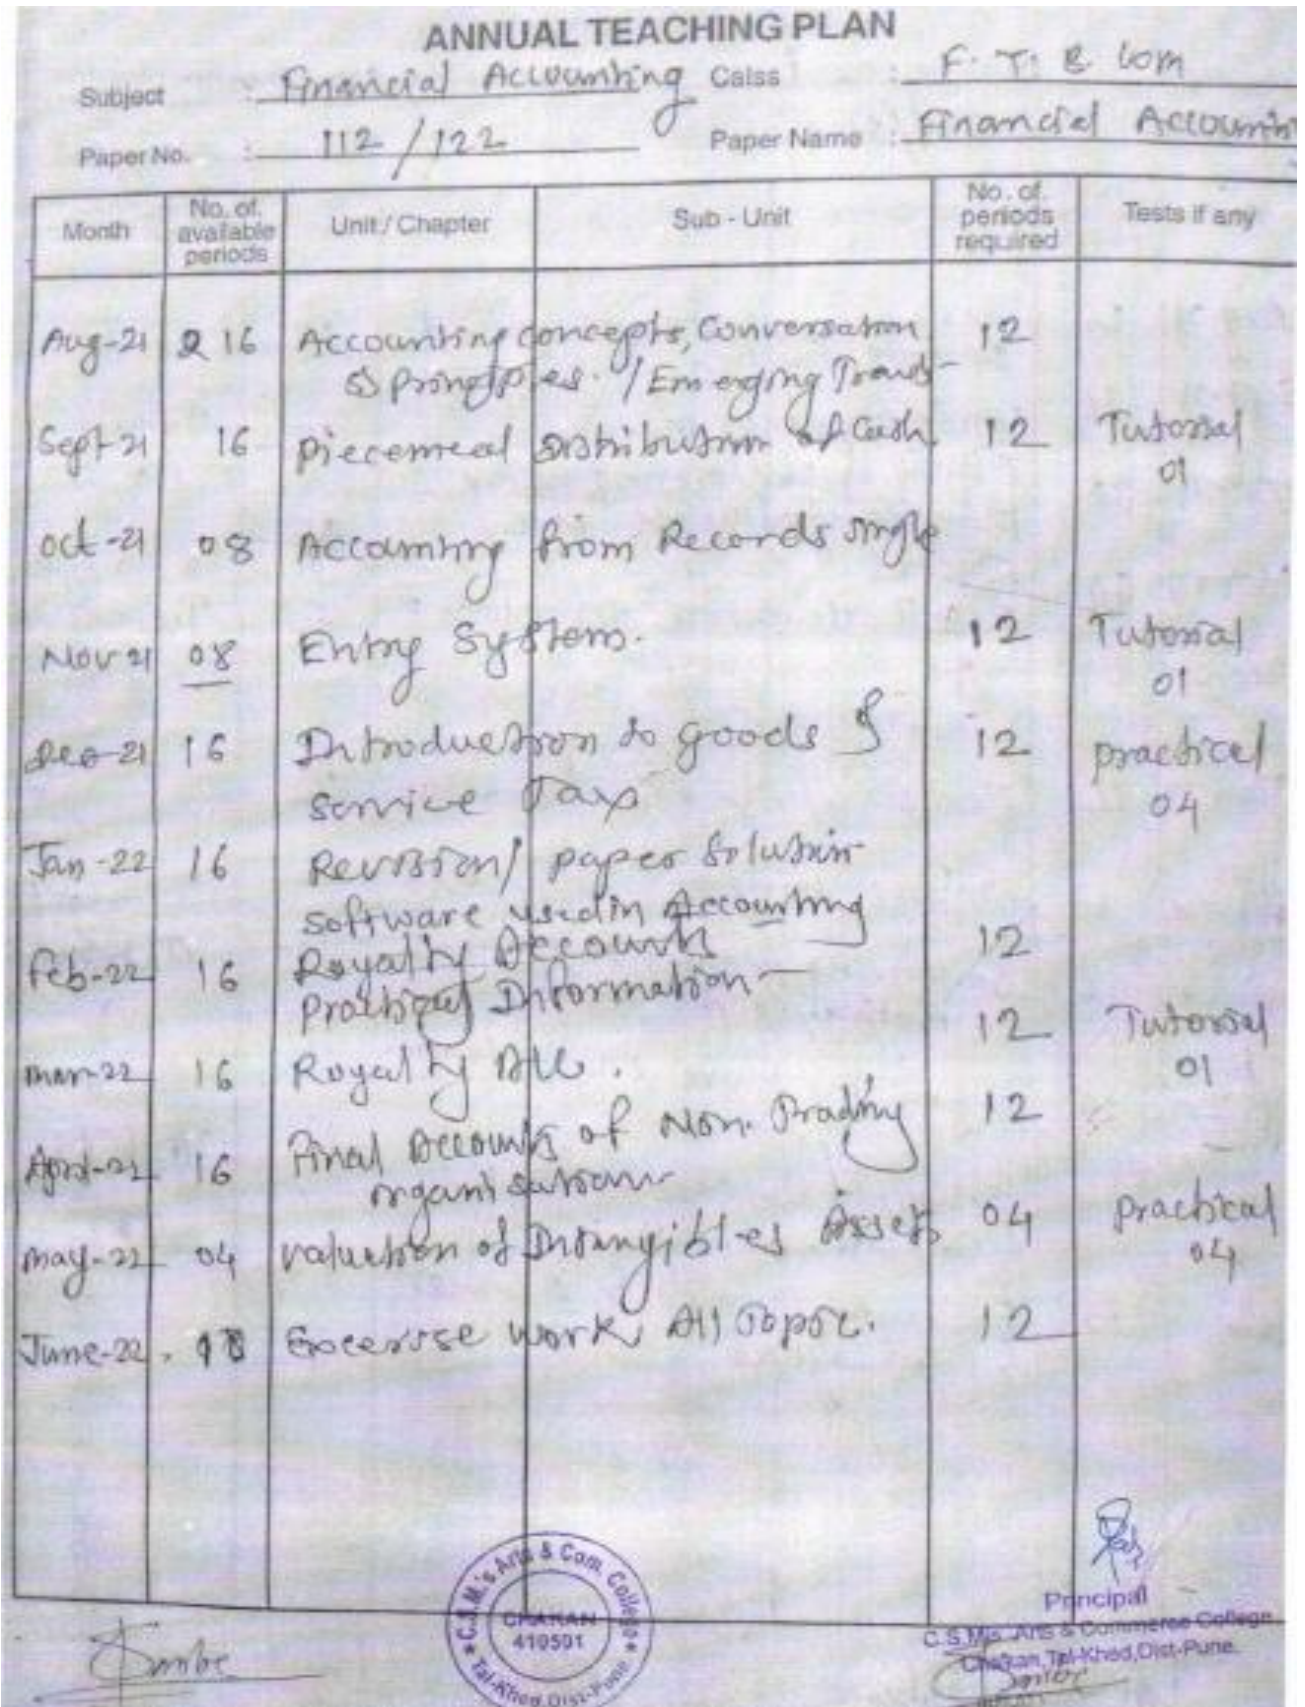 ANNUAL TEACHING PLAN
Subject : Financial Accounting Calss : F. Y. B Com
Paper No. : 112 / 122 Paper Name : Financial Accounti
Month No. of available periods Unit / Chapter Sub - Unit No. of periods required Tests if any
Aug-21 16 Accounting concepts, Conversation 12
& Principles. / Emerging Trends
Sept-21 16 Piecemeal Distribution of Cash 12 Tutorial
01
Oct-21 08 Accounting from Records single
Nov 21 08 Entry System. 12 Tutorial
01
Dec-21 16 Introduction to goods & 12 practical
service Tax 04
Jan-22 16 Revision / paper Solution
software used in Accounting
Feb-22 16 Royalty Accounts 12
practical Information
12 Tutorial
Mar-22 16 Royalty A/c. 01
Final Accounts of Non. Trading 12
April-22 16 organisation
May-22 04 valuation of Intangibles Assets 04 practical
04
June-22 Excersise work All Topic. 12
C.S.M.'s Arts & Com. College
CHAKAN
410501
Tal-Khed, Dist-Pune
Principal
C.S.M's. Arts & Commerce College
Chakan, Tal-Khed, Dist-Pune.